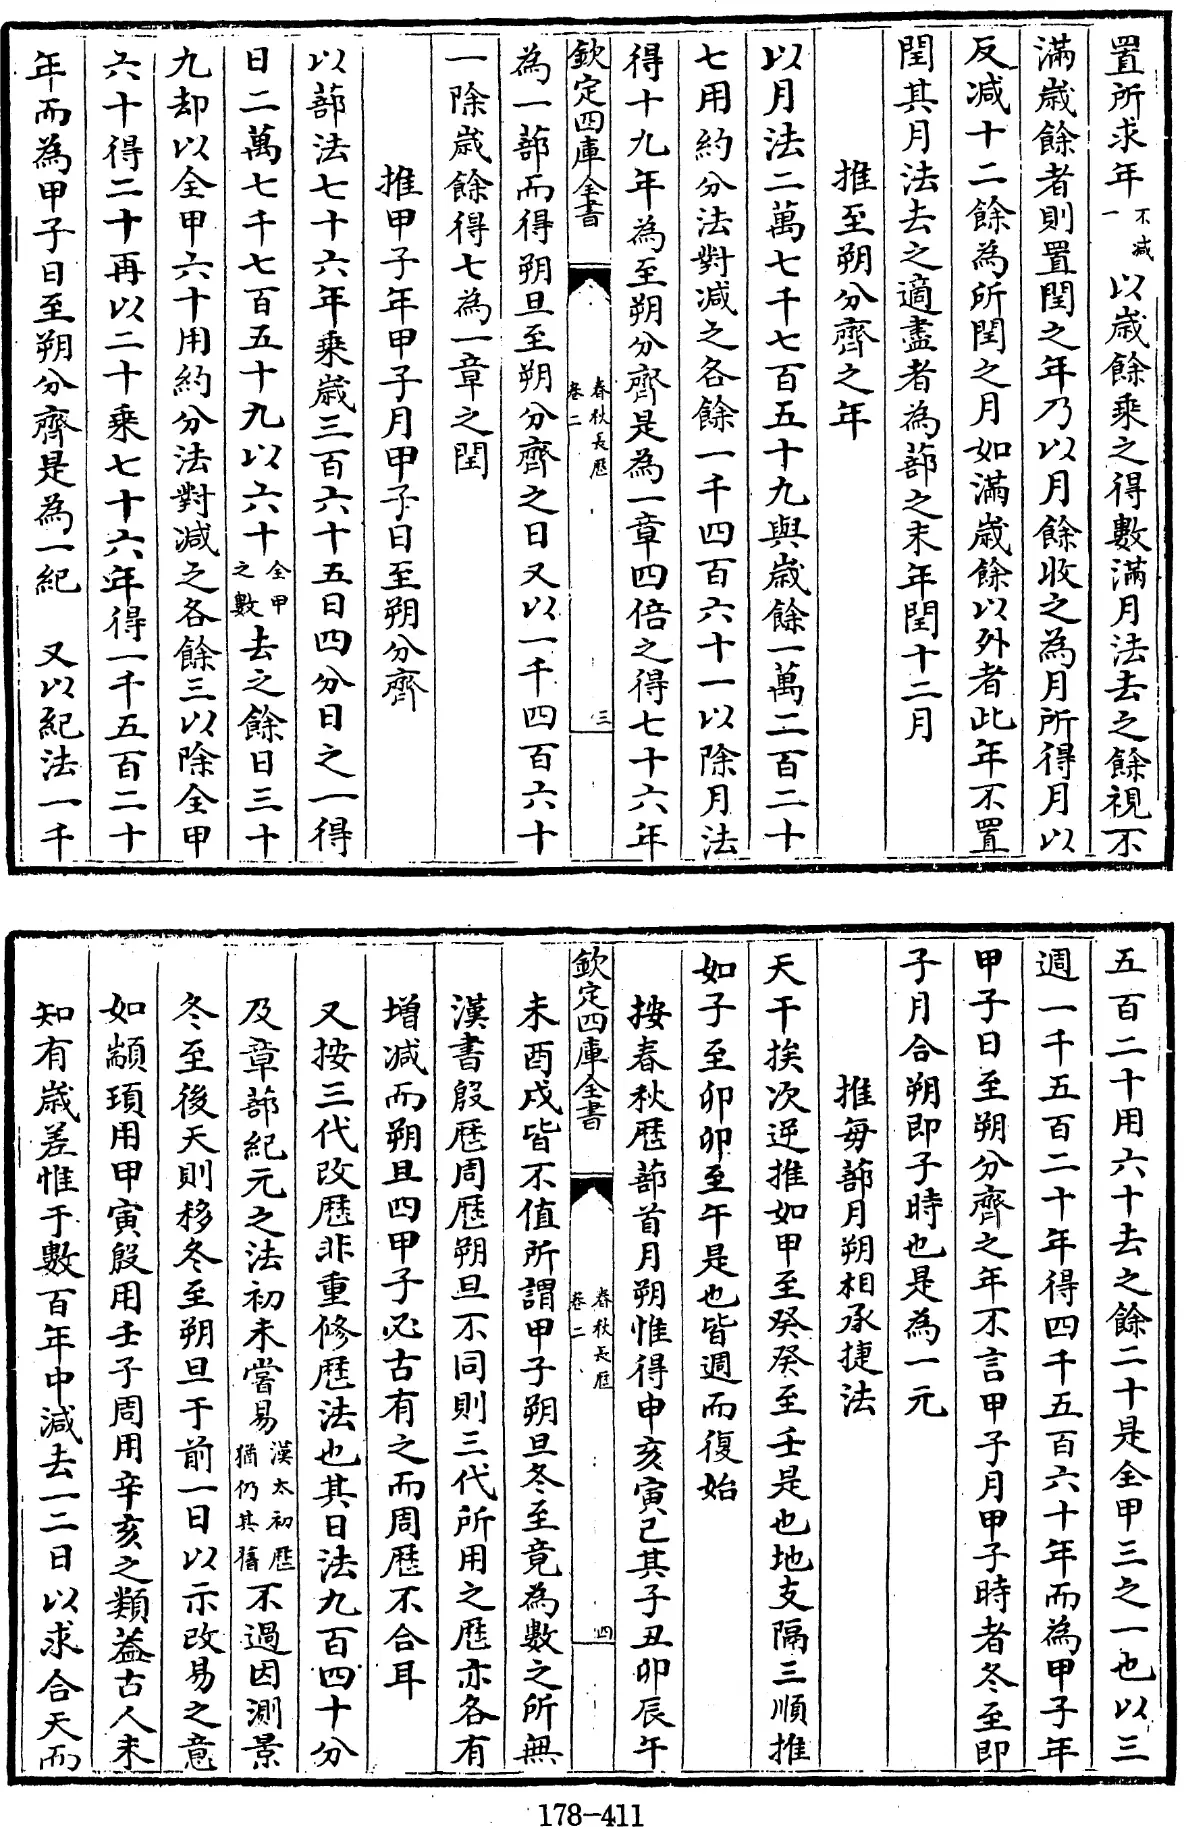 置所求年不減一以歲餘乘之得數滿月法去之餘視不
滿歲餘者則置閏之年乃以月餘收之為月所得月以
反減十二餘為所閏之月如滿歲餘以外者此年不置
閏其月法去之適盡者為蔀之末年閏十二月
推至朔分齊之年
以月法二萬七千七百五十九與歲餘一萬二百二十
七用約分法對減之各餘一千四百六十一以除月法
得十九年為至朔分齊是為一章四倍之得七十六年
欽定四庫全書
春秋長歷
卷二
三
為一蔀而得朔旦至朔分齊之日又以一千四百六十
一除歲餘得七為一章之閏
推甲子年甲子月甲子日至朔分齊
以蔀法七十六年乘歲三百六十五日四分日之一得
日二萬七千七百五十九以六十全甲之數去之餘日三十
九却以全甲六十用約分法對減之各餘三以除全甲
六十得二十再以二十乘七十六年得一千五百二十
年而為甲子日至朔分齊是為一紀 又以紀法一千
五百二十用六十去之餘二十是全甲三之一也以三
週一千五百二十年得四千五百六十年而為甲子年
甲子日至朔分齊之年不言甲子月甲子時者冬至即
子月合朔即子時也是為一元
推每蔀月朔相承捷法
天干挨次逆推如甲至癸癸至壬是也地支隔三順推
如子至卯卯至午是也皆週而復始
按春秋歷蔀首月朔惟得申亥寅己其子丑卯辰午
欽定四庫全書
春秋長歷
卷二
四
未酉戌皆不值所謂甲子朔旦冬至竟為數之所無
漢書殷歷周歷朔旦不同則三代所用之歷亦各有
增減而朔旦四甲子必古有之而周歷不合耳
又按三代改歷非重修歷法也其日法九百四十分
及章蔀紀元之法初未嘗易漢太初歷猶仍其舊不過因測景
冬至後天則移冬至朔旦于前一日以示改易之意
如顓頊用甲寅殷用壬子周用辛亥之類葢古人未
知有歲差惟于數百年中減去一二日以求合天而
178-411